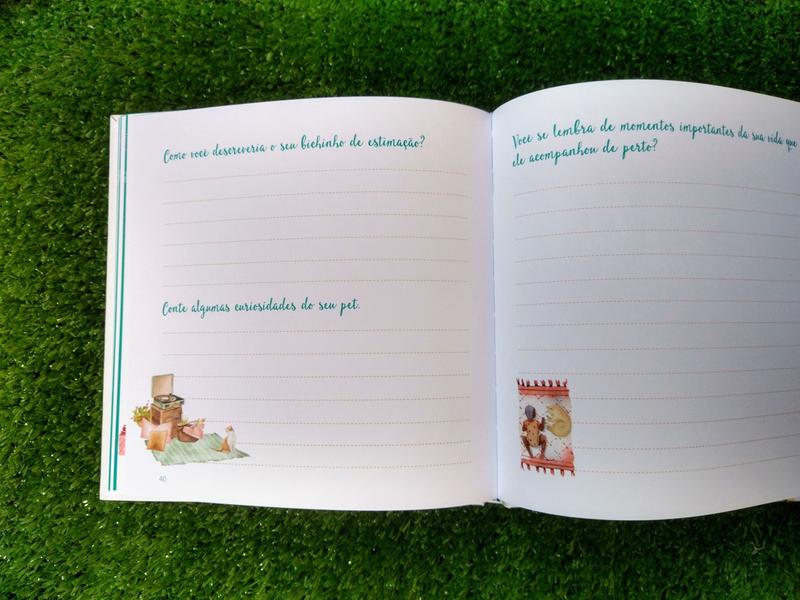 Como você descreveria o seu bichinho de estimação?
Conte algumas curiosidades do seu pet.
40
Você se lembra de momentos importantes da sua vida que
ele acompanhou de perto?